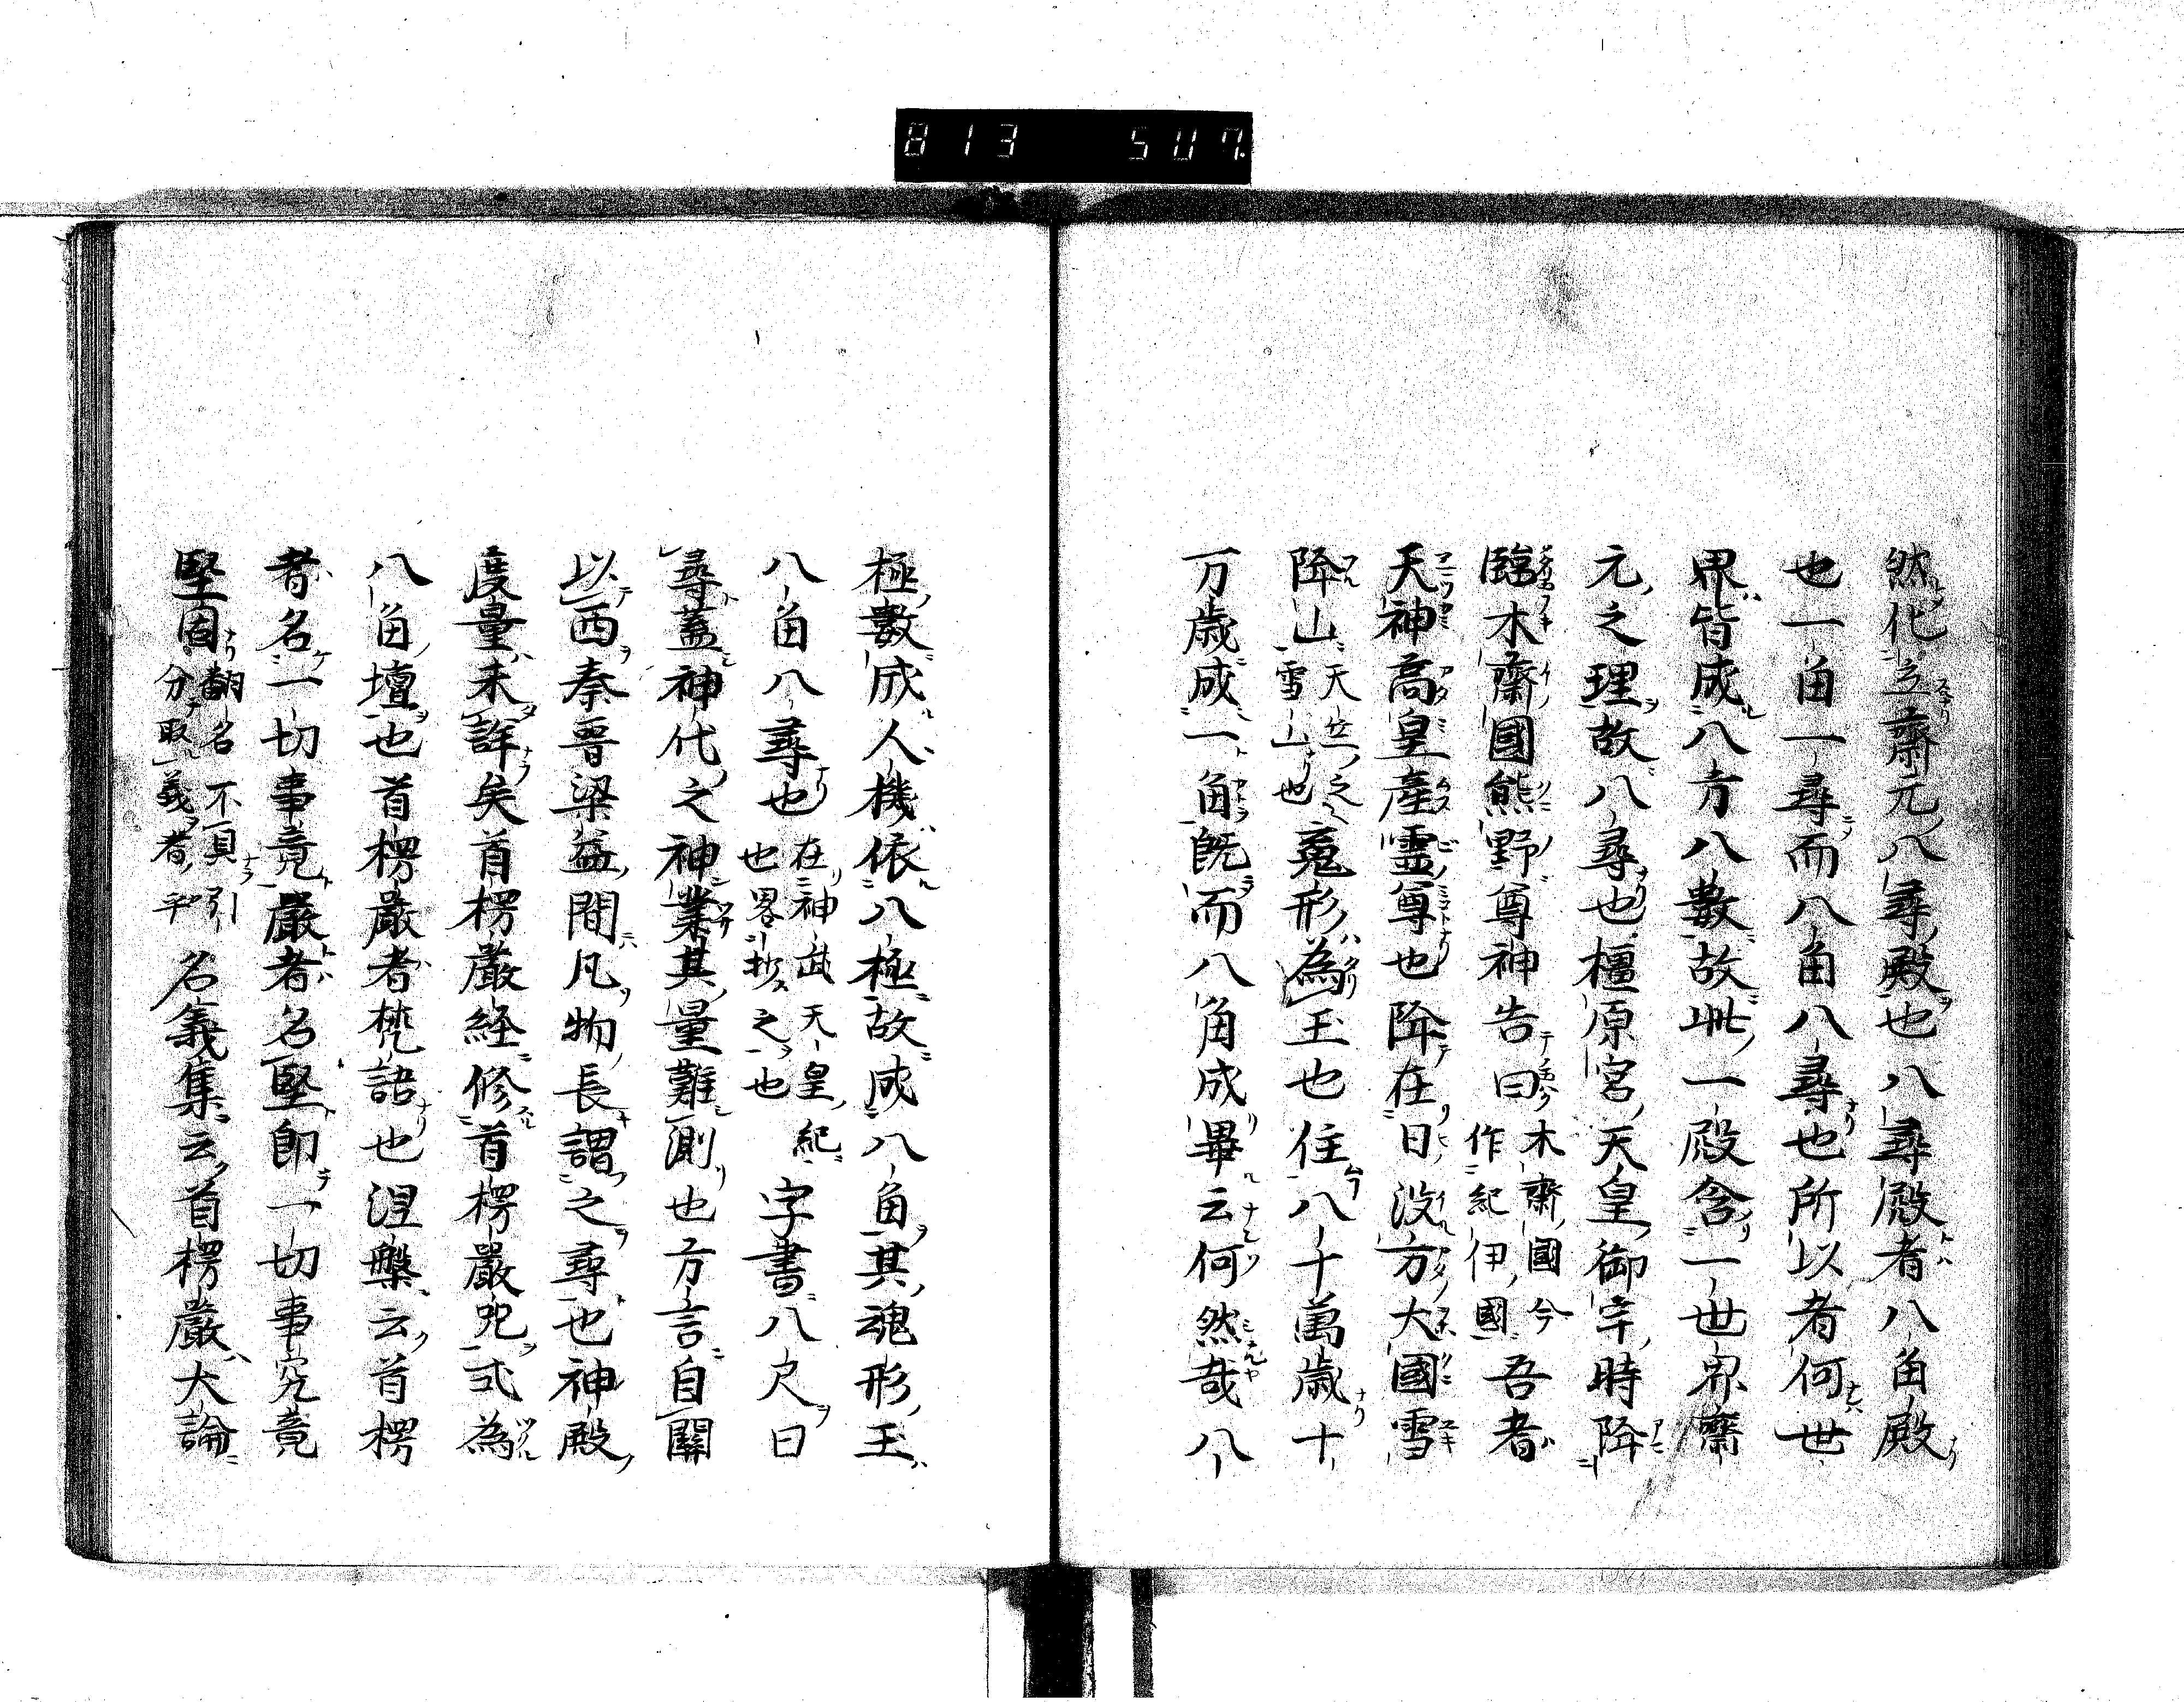 813 507
然化立齋元八尋殿也八尋殿者八角殿
也一角一尋而八角八尋也所以者何世
界皆成八方八數故此一殿含一世界齋
元之理故八尋也橿原宮天皇御宇時降
臨木齋國熊野尊神告曰 木齋國今作紀伊國 吾者
天神高皇產靈尊也降在日没方大國雪
降山 天竺之雪山也 菟形為玉也住八十萬歲十
万歲成一角既而八角成畢云何然哉八
極數成人機依八極故成八角其魂形玉
八角八尋也 在神武天皇紀也畧抄之也 字書八尺曰
尋蓋神代之神業其量難測也方言自關
以西秦晉梁益間凡物長謂之尋也神殿
度量未詳矣首楞嚴経修首楞嚴咒式為
八角壇也首楞嚴者梵語也涅槃云首楞
者名一切事竟嚴者名堅即一切事究竟
堅固 翻名不具引分取義者乎 名義集云首楞嚴大論